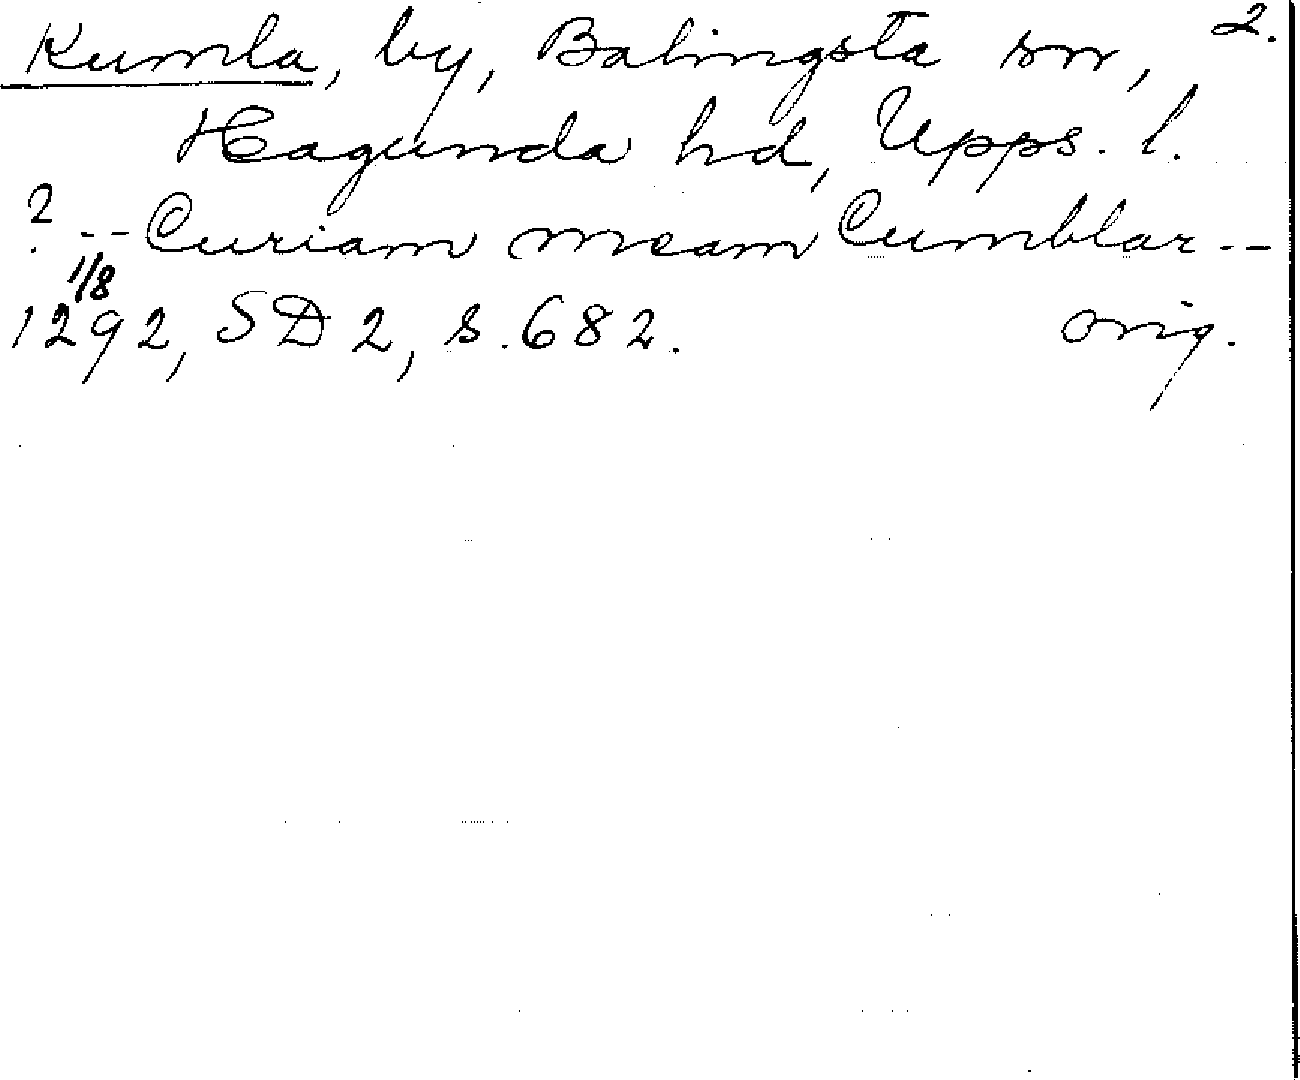 Kumla, by, Balingsta sn, 2.
Hagunda hd, Upps. l.
? -- Curiam meam Cumblar --
1/8
1292, SD 2, s. 682. orig.